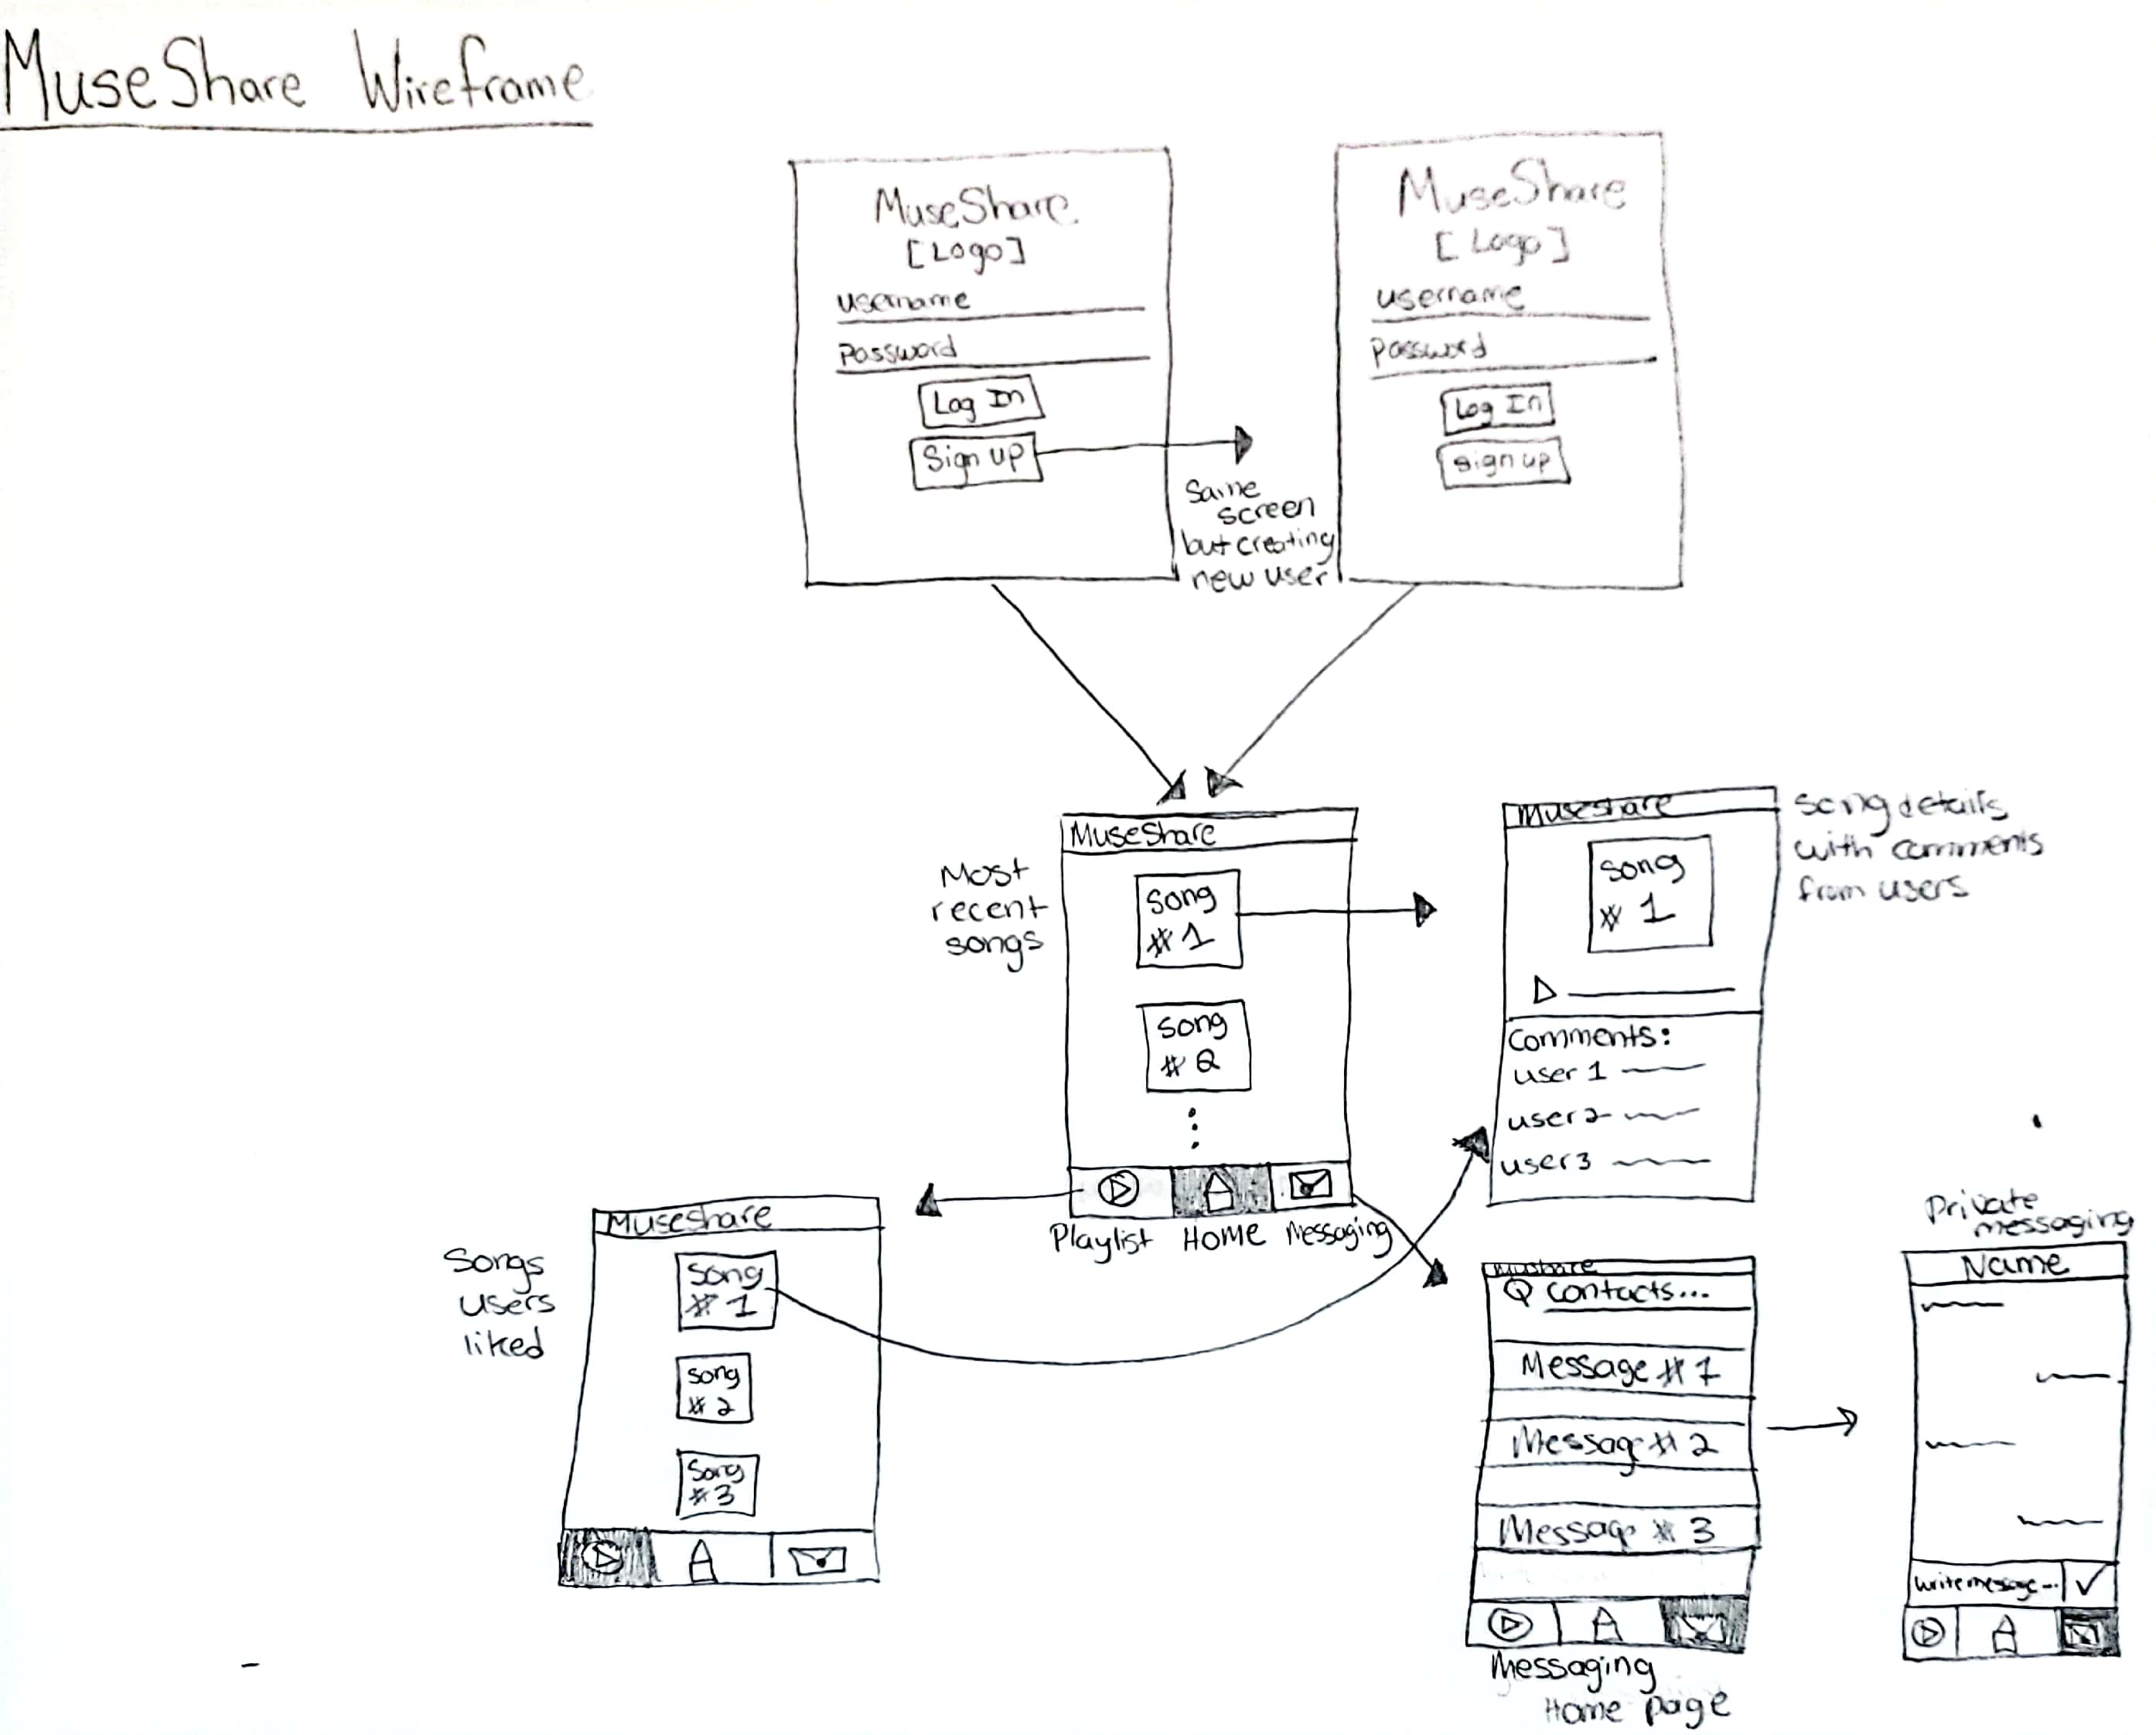 MuseShare Wireframe
MuseShare
[Logo]
username
password
Log In
Sign up
Same
screen
but creating
new user
MuseShare
[Logo]
username
password
Log In
sign up
Most
recent
songs
MuseShare
song
#1
song
#2
Playlist Home Messaging
Museshare
song
#1
Comments:
user 1
user 2
user 3
song details
with comments
from users
Songs
users
liked
Museshare
song
#1
song
#2
Song
#3
Mushare
contacts...
Message #1
Message #2
Message #3
Messaging
Home page
Private
messaging
Name
write message...